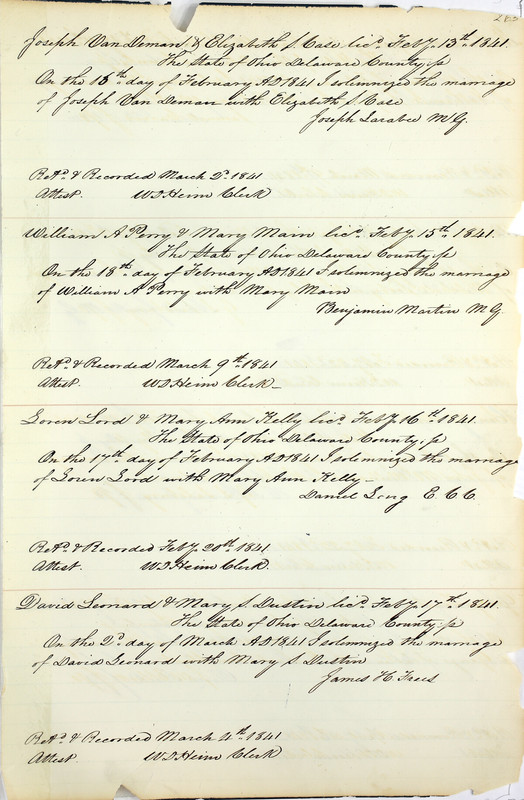 Joseph Van Deman & Elizabeth S. Case licd. Feby. 13th. 1841.
The State of Ohio Delaware County, ss
On the 18th. day of February AD 1841 I solemnized the marriage
of Joseph Van Deman with Elizabeth S. Case
Joseph Larabee M.G.
Retd. & Recorded March 2d. 1841
Attest. W D Heim Clerk
William A Perry & Mary Main licd. Feby. 15th. 1841.
The State of Ohio Delaware County, ss
On the 18th. day of February AD 1841 I solemnized the marriage
of William A Perry with Mary Main
Benjamin Martin M.G.
Retd. & Recorded March 9th. 1841
Attest. W D Heim Clerk
Loren Lord & Mary Ann Kelly licd. Feby. 16th. 1841.
The State of Ohio Delaware County, ss
On the 17th. day of February AD 1841 I solemnized the marriage
of Loren Lord with Mary Ann Kelly
Daniel E.C.C.
Retd. & Recorded Feby. 20th. 1841
Attest. W D Heim Clerk.
David Leonard & Mary S. Dustin licd. Feby. 17th. 1841.
The State of Ohio Delaware County, ss
On the 2d. day of March AD 1841 I solemnized the marriage
of David Leonard with Mary S Dustin
James H.
Retd. & Recorded March 4th. 1841
Attest. W D Heim Clerk